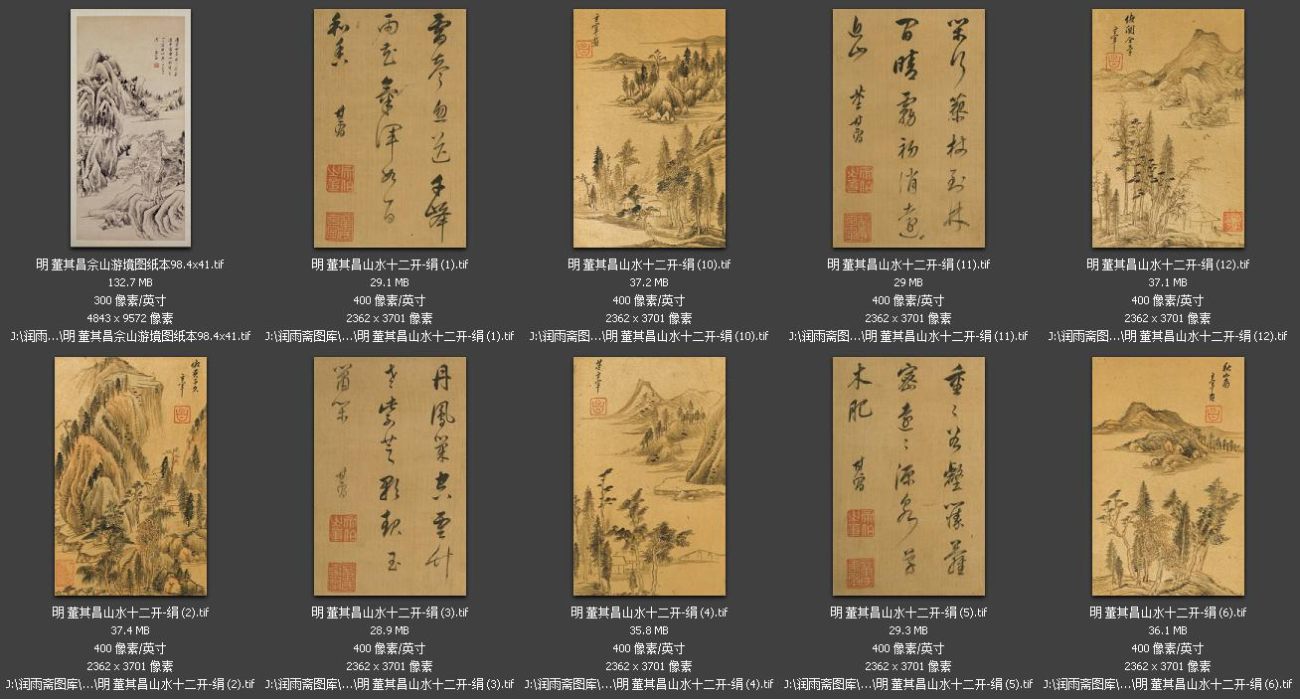 明 董其昌佘山游境图纸本98.4x41.tif
132.7 MB
300 像素/英寸
4843 x 9572 像素
J:\润雨...\明 董其昌佘山游境图纸本98.4x41.tif
和香
雨花飞浑如百
雷
明 董其昌山水十二开-绢 (1).tif
29.1 MB
400 像素/英寸
2362 x 3701 像素
J:\润雨斋图库\...\明 董其昌山水十二开-绢 (1).tif
玄宰
明 董其昌山水十二开-绢 (10).tif
37.2 MB
400 像素/英寸
2362 x 3701 像素
J:\润雨斋图...\明 董其昌山水十二开-绢 (10).tif
藜杖到林
間晴霧初消遠
近山
董其昌
明 董其昌山水十二开-绢 (11).tif
29 MB
400 像素/英寸
2362 x 3701 像素
J:\润雨斋图...\明 董其昌山水十二开-绢 (11).tif
玄宰
明 董其昌山水十二开-绢 (12).tif
37.1 MB
400 像素/英寸
2362 x 3701 像素
J:\润雨斋图...\明 董其昌山水十二开-绢 (12).tif
玄宰
明 董其昌山水十二开-绢 (2).tif
37.4 MB
400 像素/英寸
2362 x 3701 像素
J:\润雨斋图库\...\明 董其昌山水十二开-绢 (2).tif
丹鳳巢空雲
老紫芝歌
明 董其昌山水十二开-绢 (3).tif
28.9 MB
400 像素/英寸
2362 x 3701 像素
J:\润雨斋图库\...\明 董其昌山水十二开-绢 (3).tif
董玄宰
明 董其昌山水十二开-绢 (4).tif
35.8 MB
400 像素/英寸
2362 x 3701 像素
J:\润雨斋图库\...\明 董其昌山水十二开-绢 (4).tif
重重巖壑蘿
密遠遠源泉草
木肥
明 董其昌山水十二开-绢 (5).tif
29.3 MB
400 像素/英寸
2362 x 3701 像素
J:\润雨斋图库\...\明 董其昌山水十二开-绢 (5).tif
秋山圖
玄宰
明 董其昌山水十二开-绢 (6).tif
36.1 MB
400 像素/英寸
2362 x 3701 像素
J:\润雨斋图库\...\明 董其昌山水十二开-绢 (6).tif